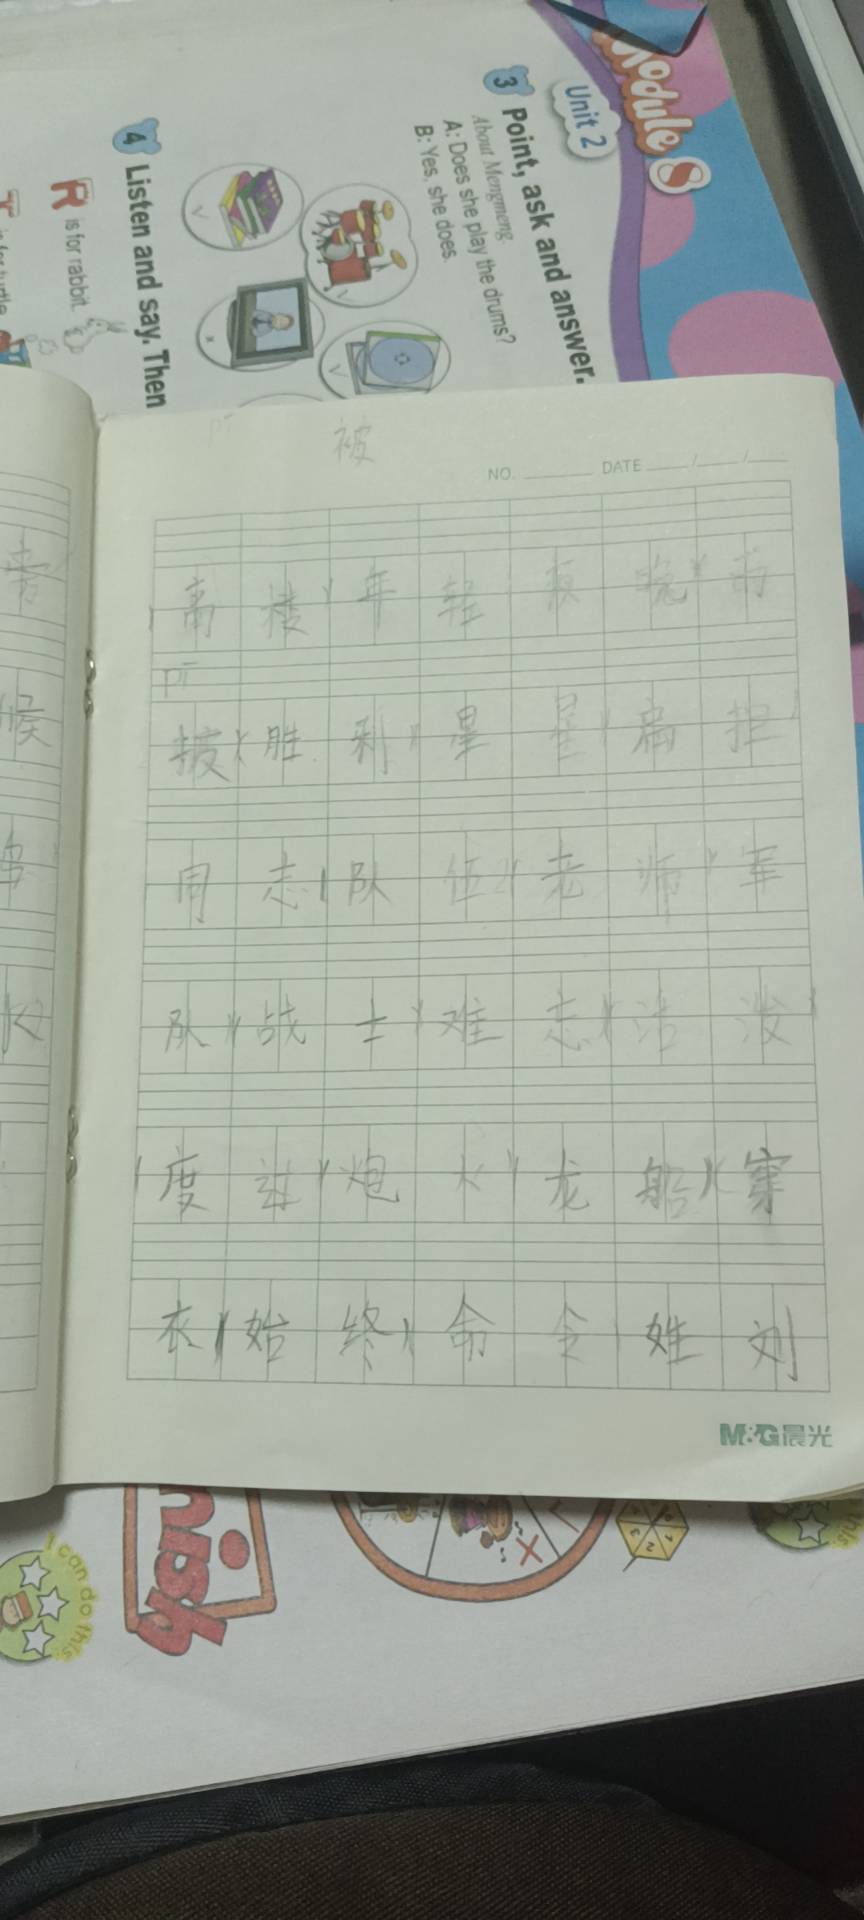 Module 8
Unit 2
3 Point, ask and answer.
About Mengmeng
A: Does she play the drums?
B: Yes, she does.
4 Listen and say. Then
R is for rabbit.
被
NO. DATE / /
高 楼 年
pī
披 胜 利 星 星
同 志 队 伍 老 师 军
队 战 士 难 忘 活 泼
度 过 炮 火 龙 船 穿
衣 始 终 命 令 姓 刘
M&G晨光
I can do this
nish